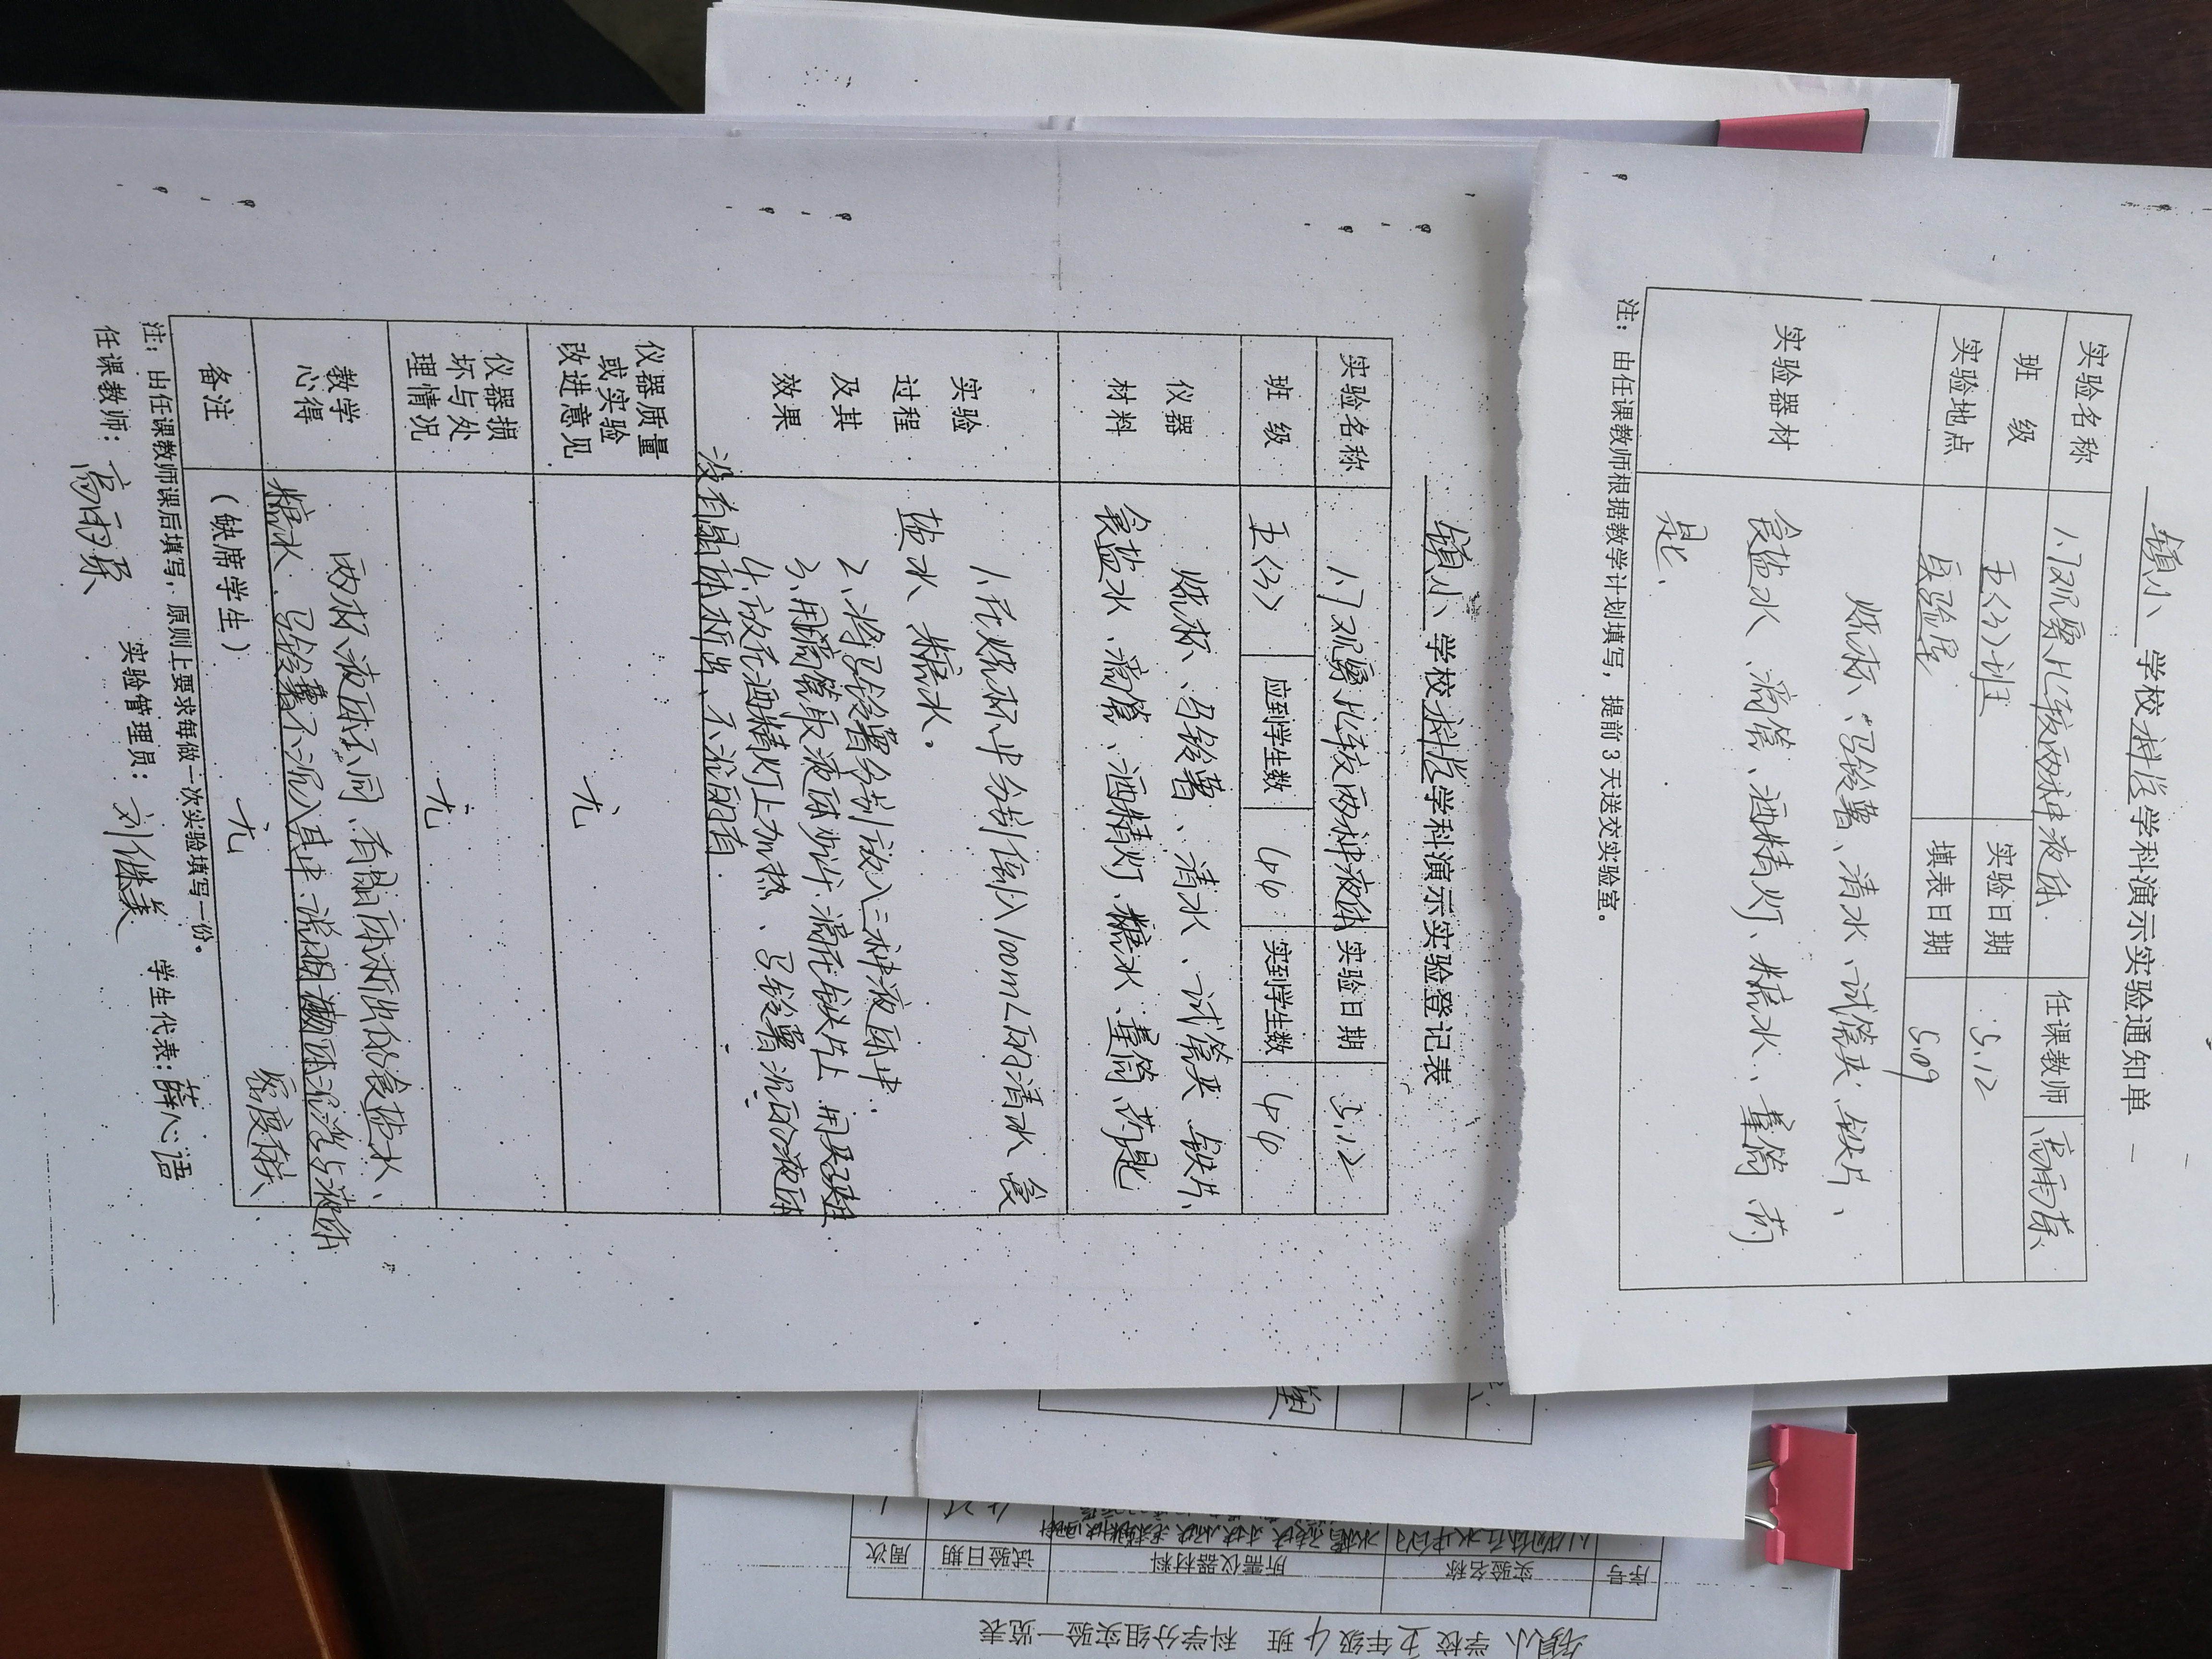 镇小 学校科学学科演示实验通知单
实验名称 1.7观察比较两种液体 任课教师 高雨荪
班 级 五(3)班 实验日期 5.12
实验地点 实验屋 填表日期 5.09
实验器材 烧杯、马铃薯、清水、试管夹、铁片、
食盐水、滴管、酒精灯、糖水、量筒、药
匙、
注：由任课教师根据教学计划填写，提前3天送交实验室。
镇小 学校科学学科演示实验登记表
实验名称 1.7观察比较两种液体 实验日期 5.12
班 级 五(3) 应到学生数 46 实到学生数 46
仪器材料 烧杯、马铃薯、清水、试管夹、铁片、
食盐水、滴管、酒精灯、糖水、量筒、药匙
实验过程及其效果 1.在烧杯中分别倒入100mL的清水、食
盐水、糖水。
2、将马铃薯分别放入三种液体中.
3、用滴管取液体少许滴在铁片上 用
4.放在酒精灯上加热、马铃薯沉的液体
没有晶体析出、不沉的有
仪器质量或实验改进意见 无
仪器损坏与处理情况 无
教学心得 两杯液体不同、有晶体析出的食盐水、
糖水、马铃薯不沉入其中、说明物体沉浮与液体
密度有关
备注 (缺席学生) 无
注：由任课教师课后填写，原则上要求每做一次实验填写一份。
任课教师：高雨荪 实验管理员：刘继美 学生代表：薛心语
镇小 学校 五年级 4 班 科学分组实验一览表
序号 实验名称 所需仪器材料 试验日期 周次